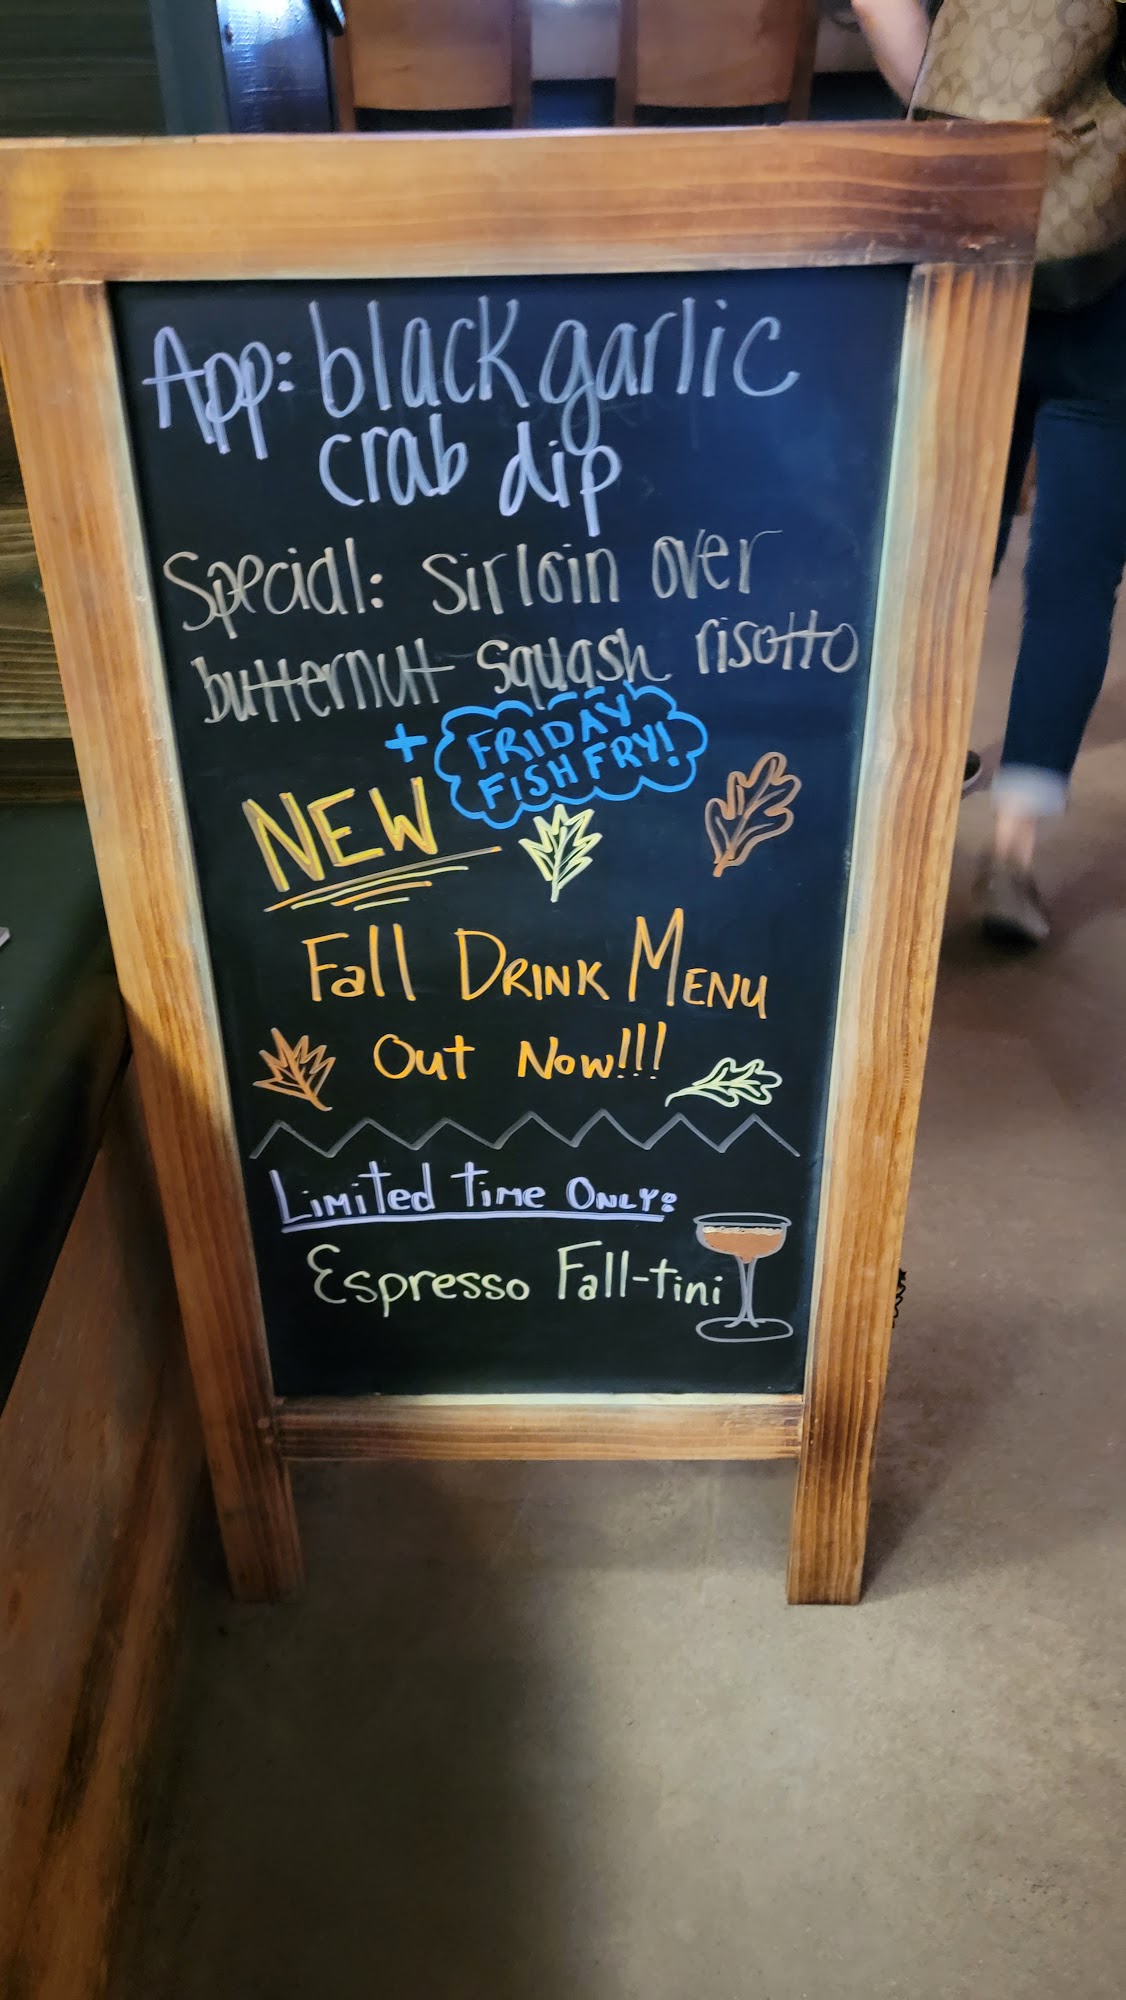 App: black garlic
crab dip
Special: sirloin over
butternut squash risotto
+ FRIDAY
FISH FRY!
NEW
Fall DRINK MENU
Out Now!!!
Limited Time ONLY:
Espresso Fall-tini